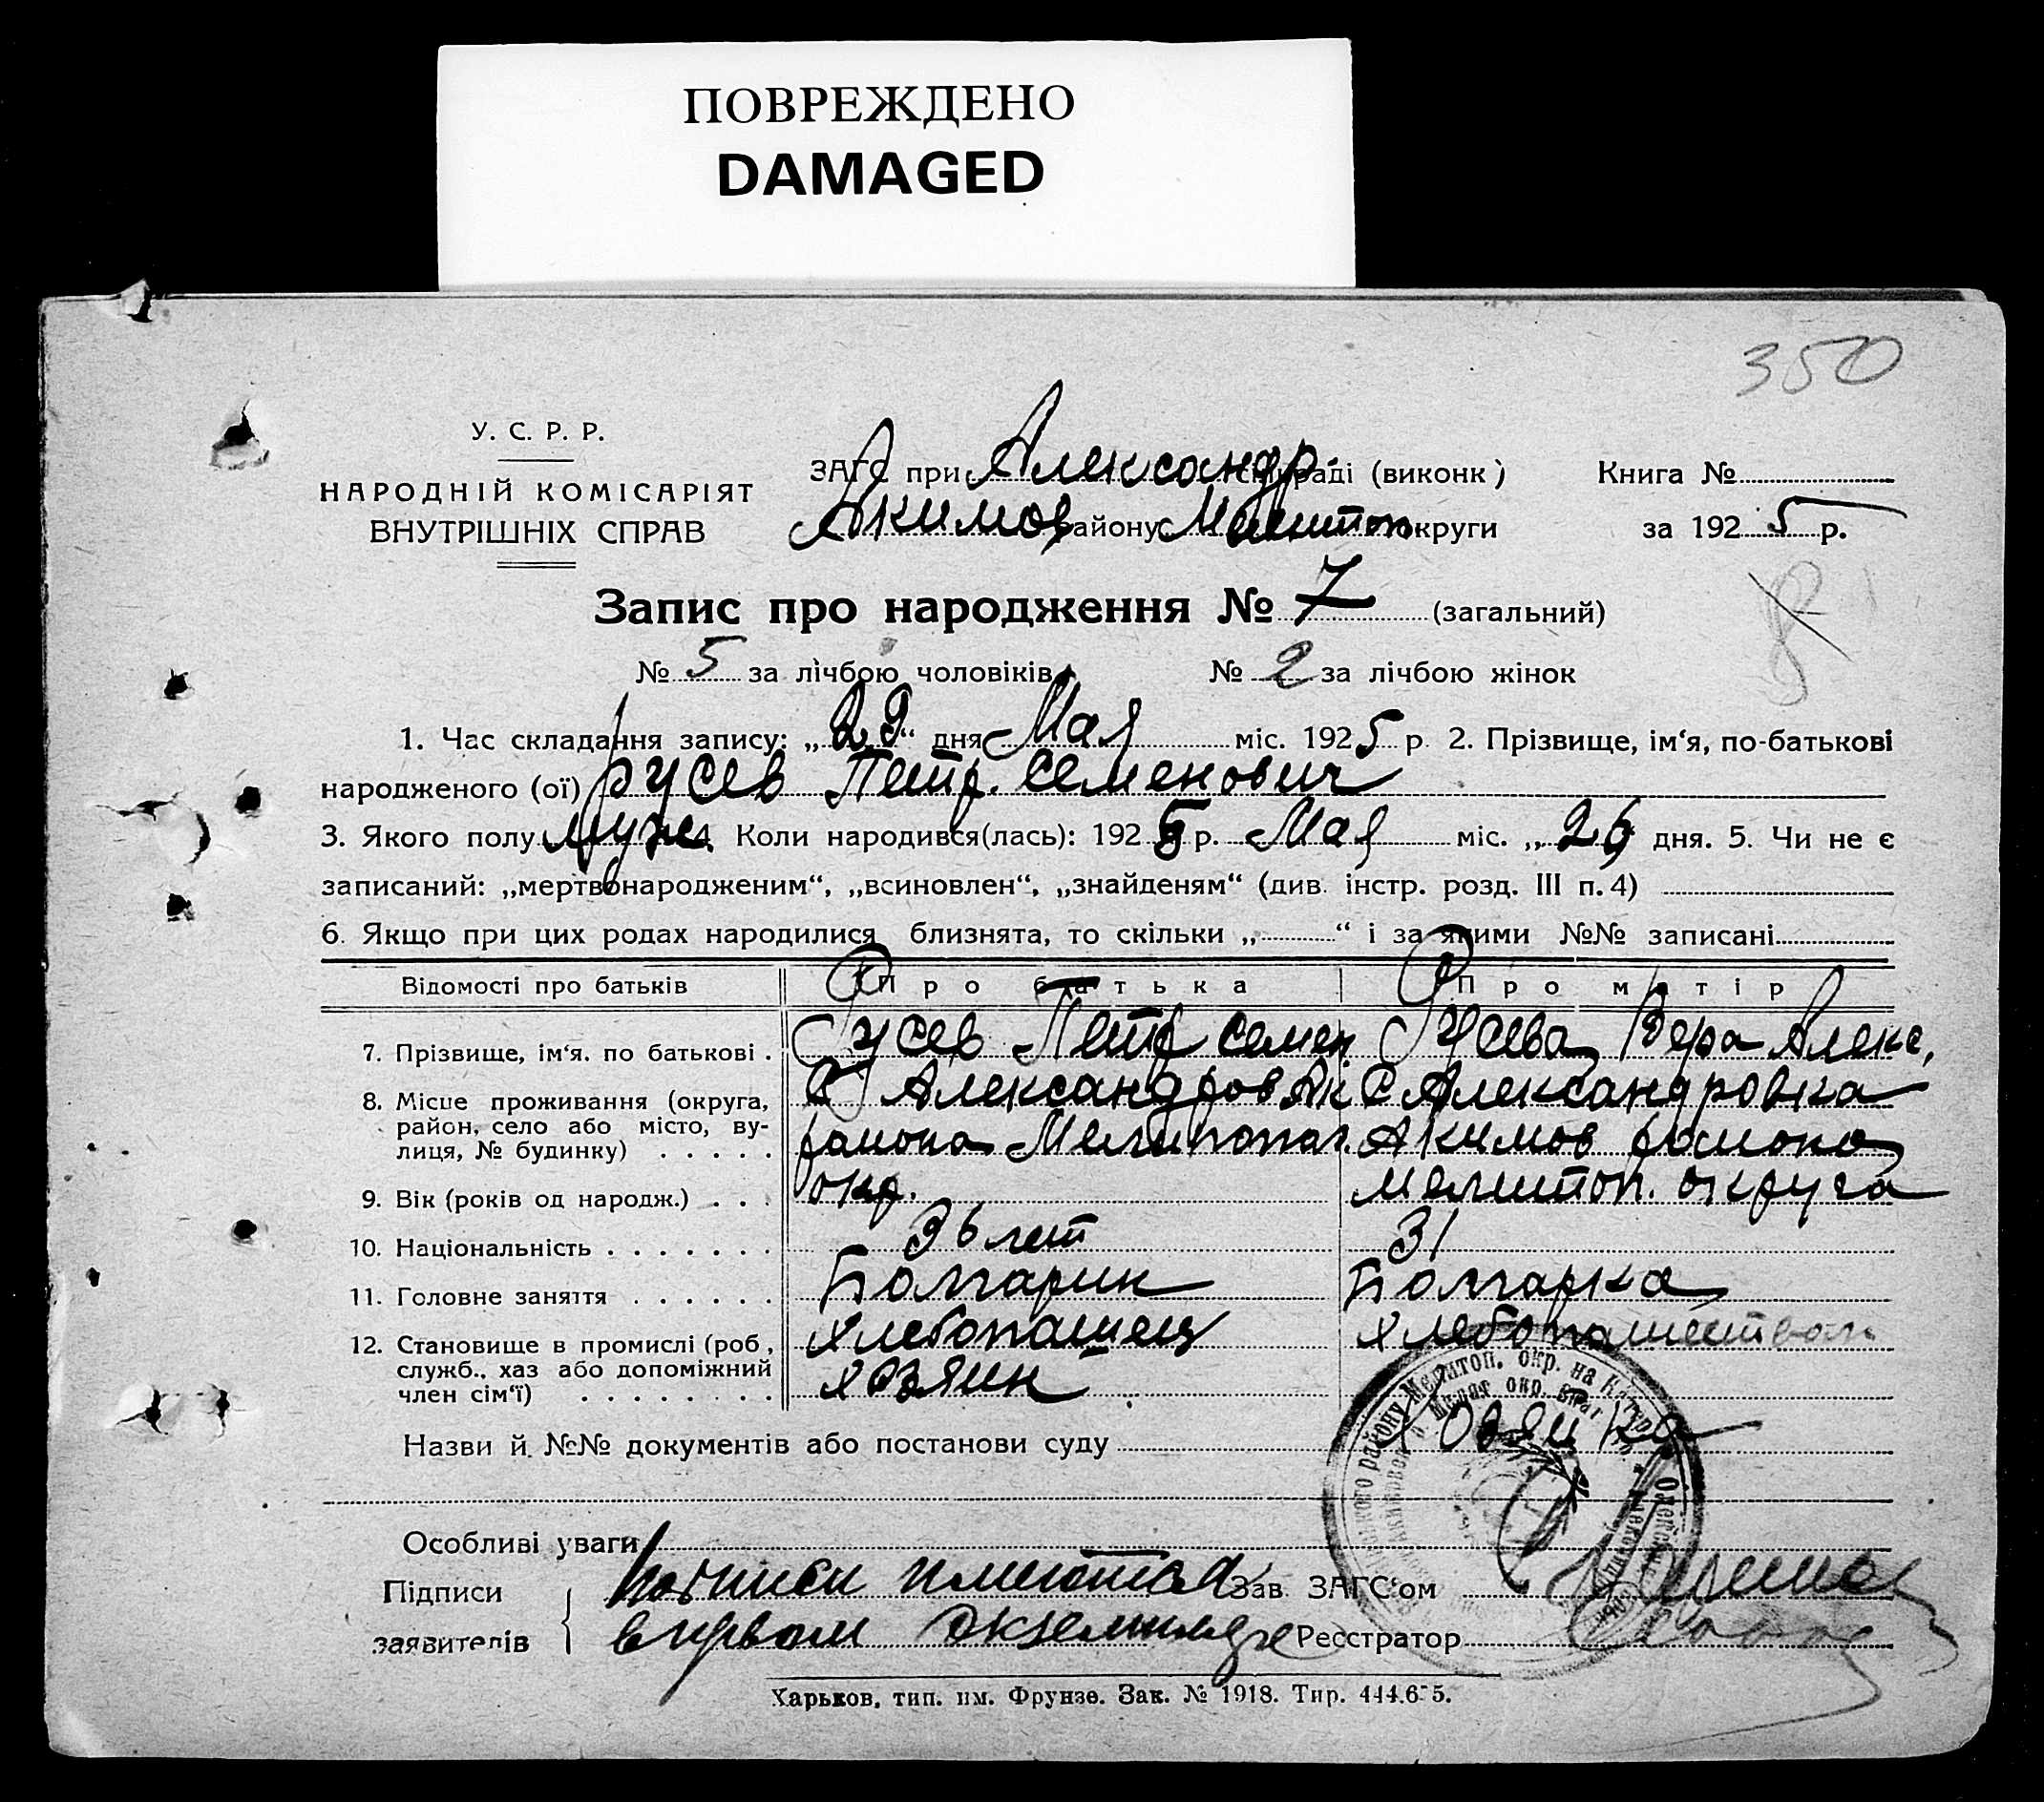 ПОВРЕЖДЕНО
DAMAGED
350
У. С. Р. Р.
НАРОДНІЙ КОМІСАРІЯТ
ВНУТРІШНІХ СПРАВ
ЗАГС при Александр. сільраді (виконк)
Акимов району Мелитоп. округи
Книга №
за 1925 р.
Запис про народження № 7 (загальний)
№ 5 за лічбою чоловіків № 2 за лічбою жінок
1. Час складання запису: „29“ дня Мая міс. 1925 р. 2. Прізвище, ім‘я, по-батькові
народженого (ої) Гусев Петр. Семенович
3. Якого полу муж. 4. Коли народився(лась): 1925 р. Мая міс. „26 дня. 5. Чи не є
записаний: „мертвонародженим“, „всиновлен“, „знайденям“ (див. інстр. розд. III п. 4)
6. Якщо при цих родах народилися близнята, то скільки „ “ і за якими №№ записані
Відомості про батьків Про батька Про матір
7. Прізвище, ім‘я. по батькові . Гусев Петр Семен Гусева Вера Алекс,
8. Місце проживання (округа, С Александров Ак С Александровка
район, село або місто, ву-
лиця, № будинку) . . . . . района Мелитопол. Акимов района
9. Вік (років од народж.) . . . окр. мелитоп. округа
10. Національність . . . . . . . 36 лет 31
11. Головне заняття . . . . . . Болгарин Болгарка
12. Становище в промислі (роб., хлебопашец
служб., хаз або допоміжний
член сім‘ї) . . . . . . . . хозяин
хозяйка
Назви й №№ документів або постанови суду
Особливі уваги
Підписи подписи имеются Зав. ЗАГС‘ом
заявителів в первом экземпляре Реєстратор
Харьков, тип. им. Фрунзе. Зак. № 1918. Тир. 444.675.